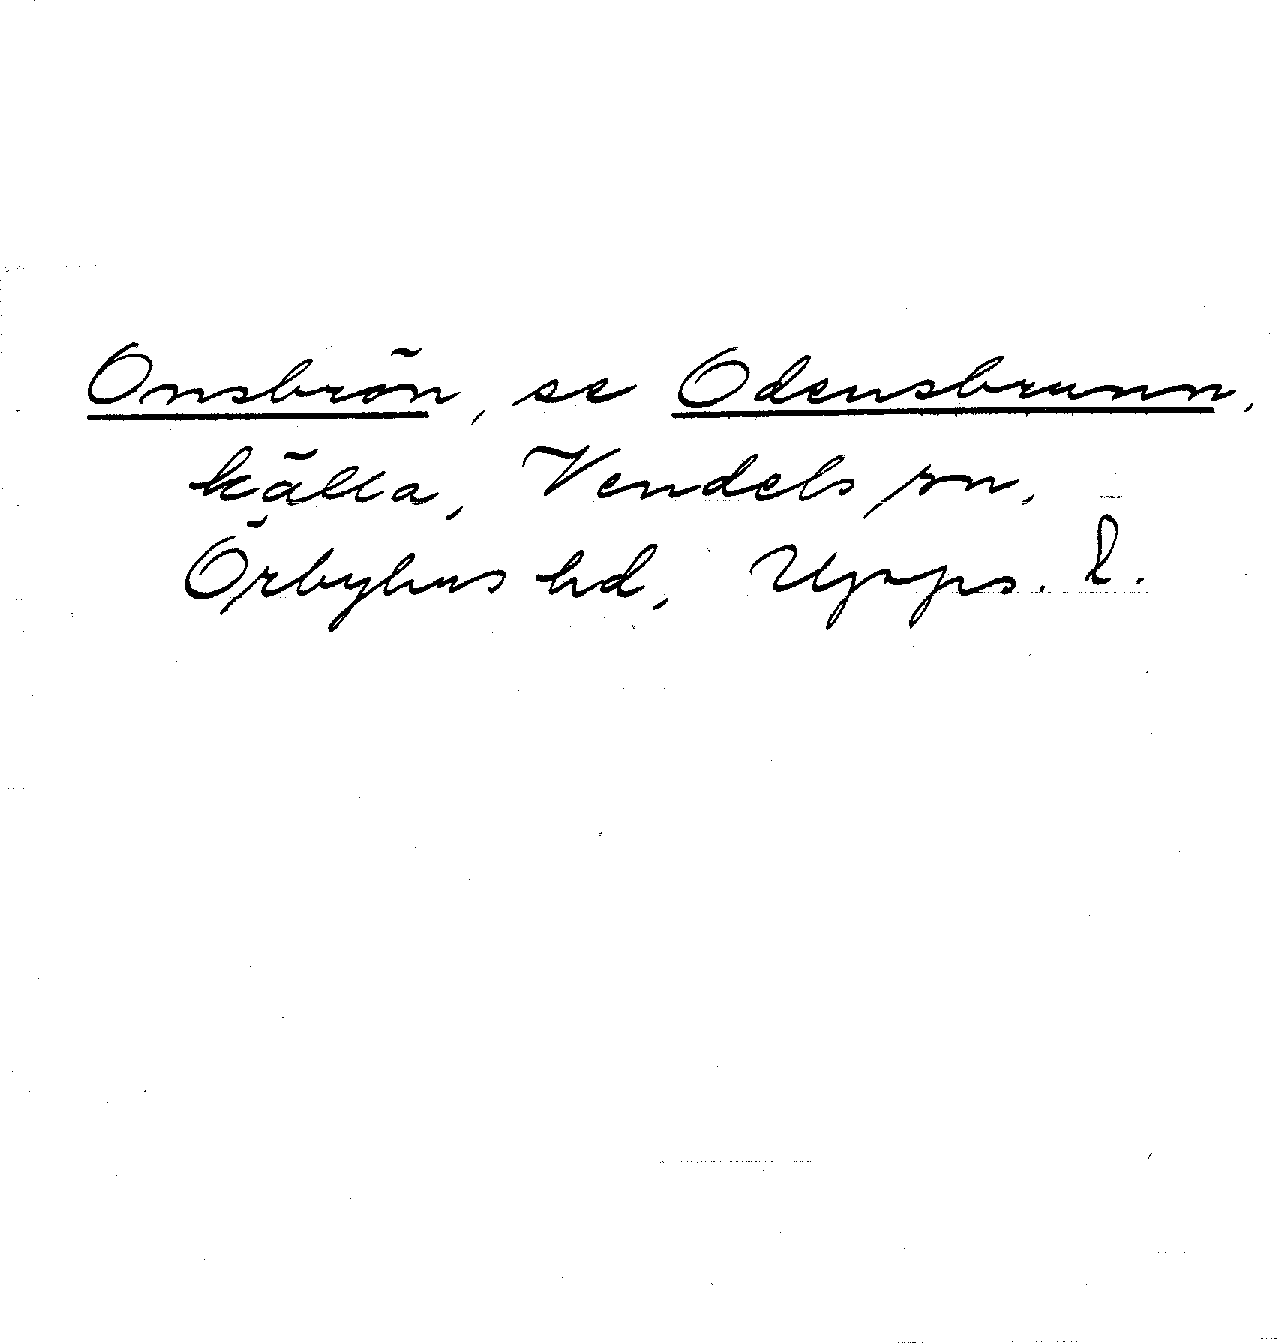 Onsbrön, se Odensbrunn,
källa, Vendels sn,
Örbyhus hd, Upps. l.